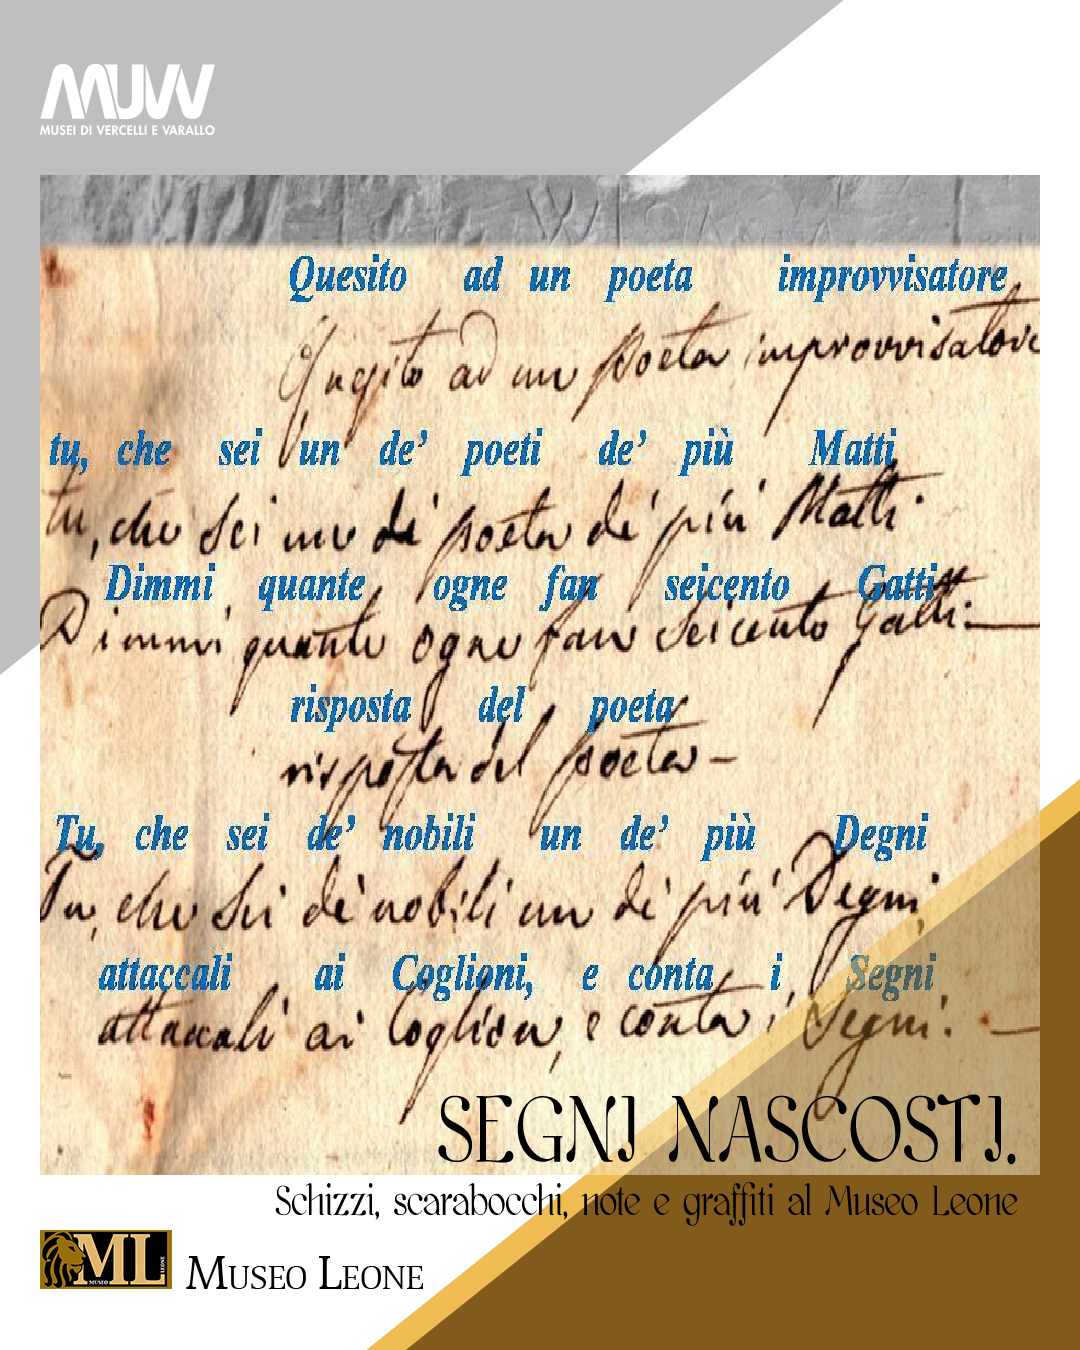 MUVV
MUSEI DI VERCELLI E VARALLO
Quesito ad un poeta improvvisatore
Quesito ad un poeta improvvisatore
tu, che sei un de’ poeti de’ più Matti
tu, che sei un de' poeta de' più Matti.
Dimmi quante ogne fan seicento Gatti
Dimmi quante ogne fan seicento Gatti.
risposta del poeta
risposta del poeta
Tu, che sei de’ nobili un de’ più Degni
Tu, che sei de' nobili un de' più Degni,
attaccali ai Coglioni, e conta i Segni
attaccali ai Coglioni, e conta i Segni.
SEGNI NASCOSTI.
Schizzi, scarabocchi, note e graffiti al Museo Leone
ML
MUSEO
LEONE
MUSEO LEONE